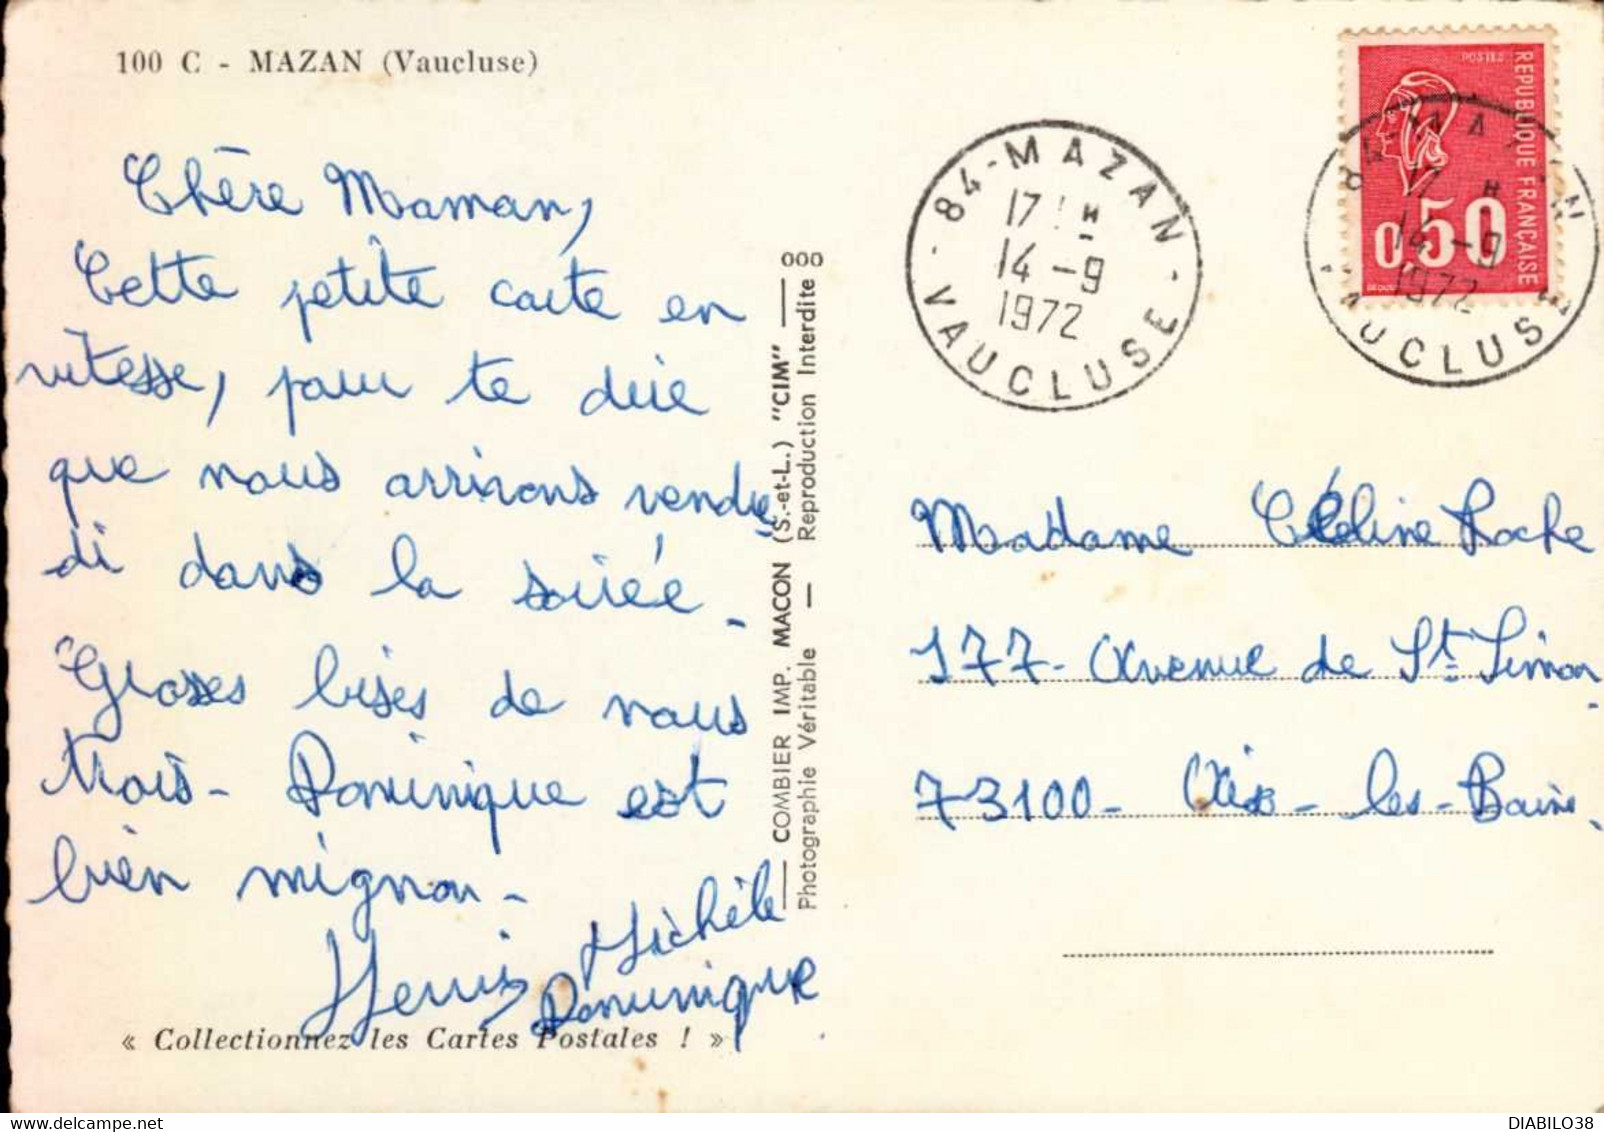 100 C - MAZAN (Vaucluse)
Chère Maman,
Cette petite carte en
vitesse, pour te dire
que nous arrivons vendre
di dans la soirée.
Grosses bises de nous
trois - Dominique est
bien mignon -
Henri Michèle
Dominique
« Collectionnez les Cartes Postales ! »
COMBIER IMP. MACON (S.-et-L.) "CIM" 000
Photographie Véritable — Reproduction Interdite
84 - MAZAN
17 H
14 - 9
1972
VAUCLUSE
POSTES
REPUBLIQUE FRANÇAISE
0,50
84 - MAZAN
17 H
14 - 9
1972
VAUCLUSE
Madame Céline Roche
177 - Avenue de St. Simon.
73100 - Aix - les - Bains.
DIABILO38